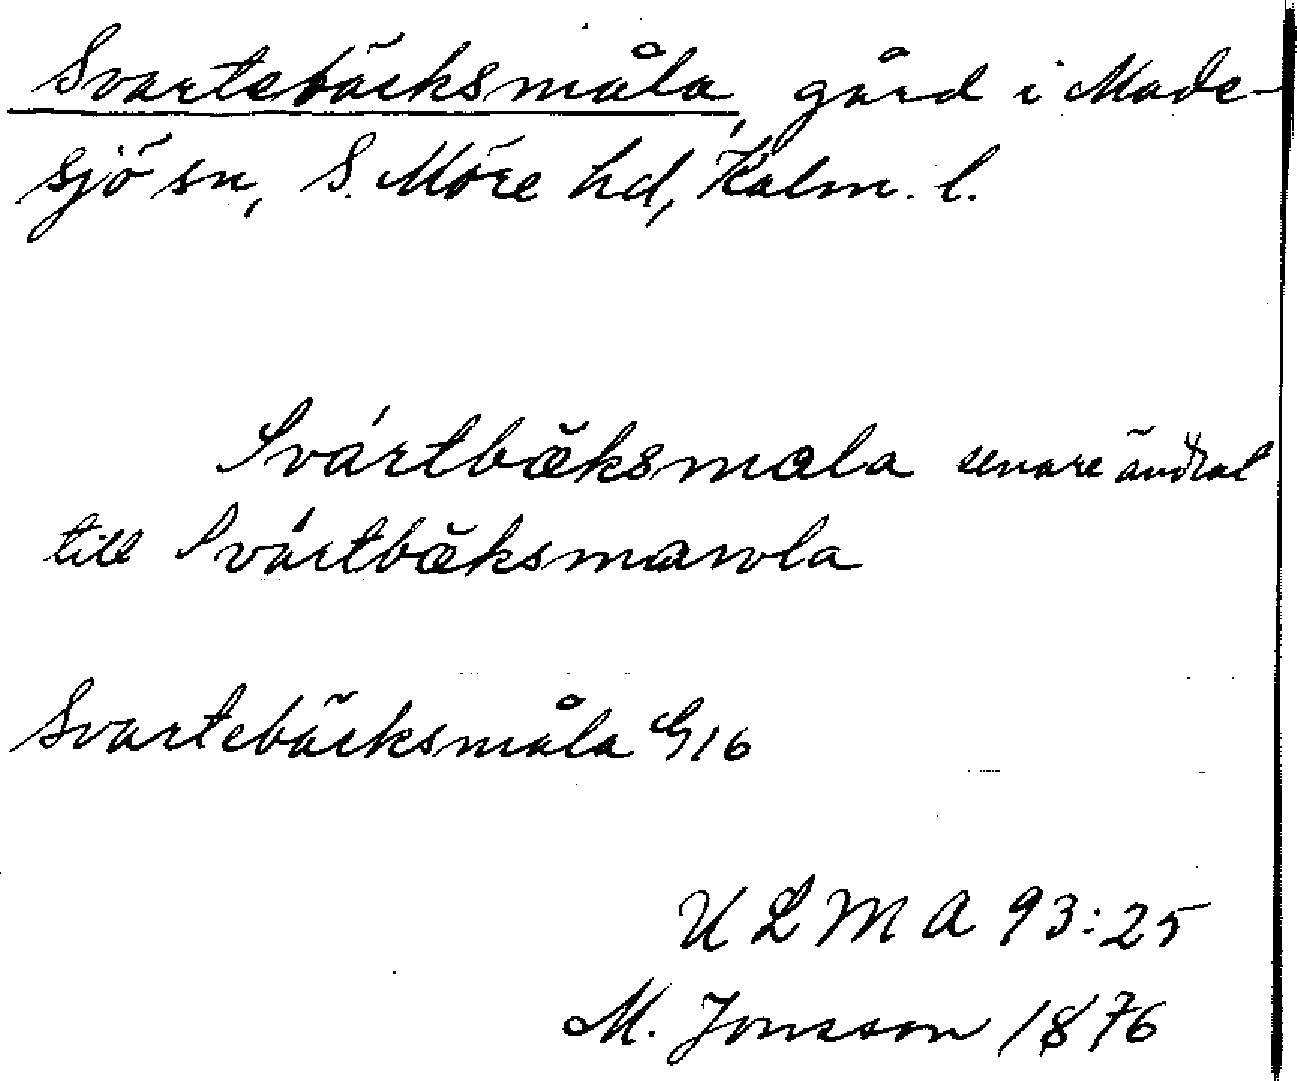 Svartebäcksmåla, gård i Made-
sjö sn, S. Möre hd, Kalm. l.
Svártbæksmala senare ändrat
till Svártbæksmawla
Svartebäcksmåla G16
ULMA 93:25
M. Jonsson 1876